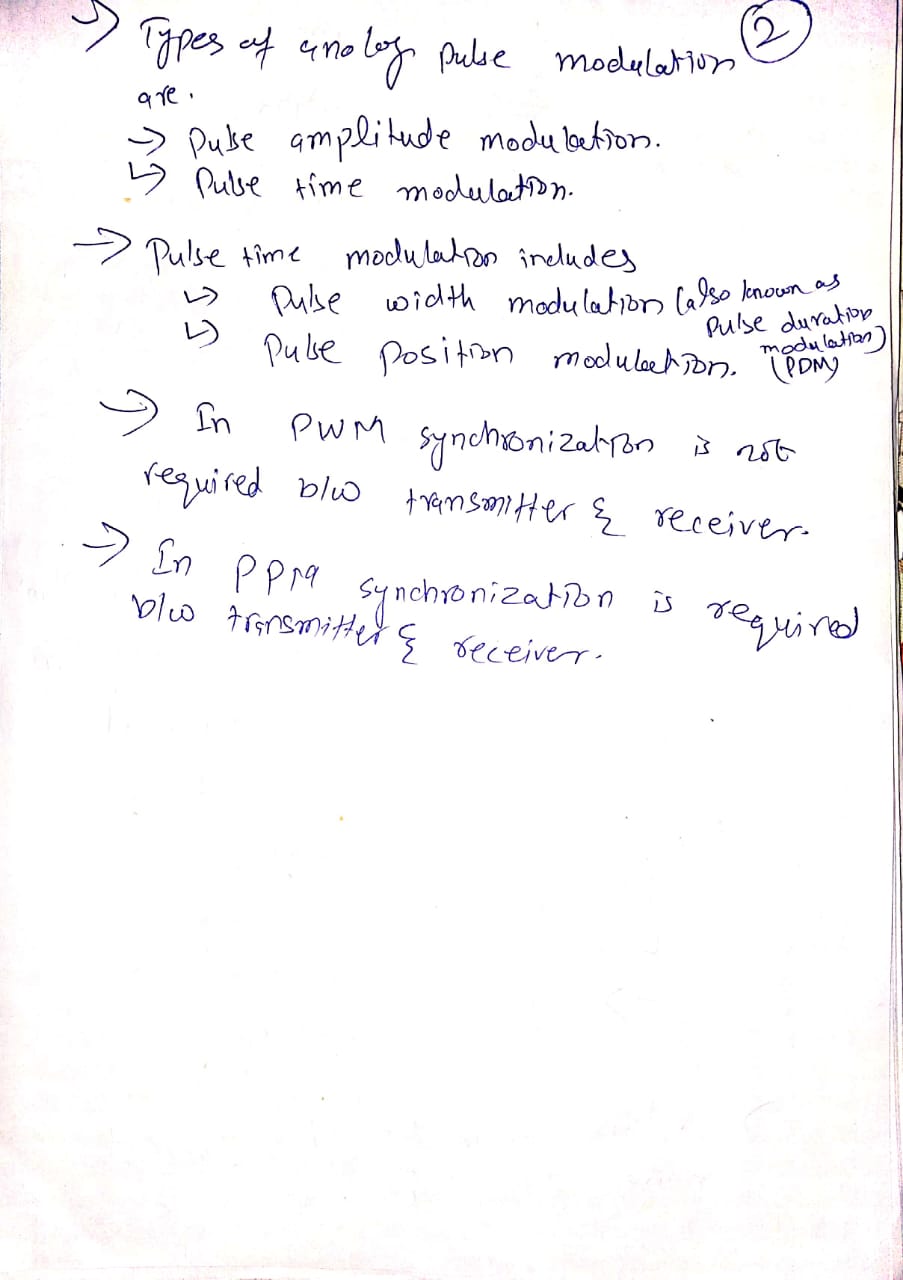 ②
→ Types of analog pulse modulation
are.
→ Pulse amplitude modulation.
↳ Pulse time modulation.
→ Pulse time modulation includes
↳ Pulse width modulation (also known as
pulse duration
modulation)
(PDM)
↳ Pulse position modulation.
→ In PWM synchronization is not
required b/w transmitter & receiver.
→ In PPM synchronization is required
b/w transmitter & receiver.